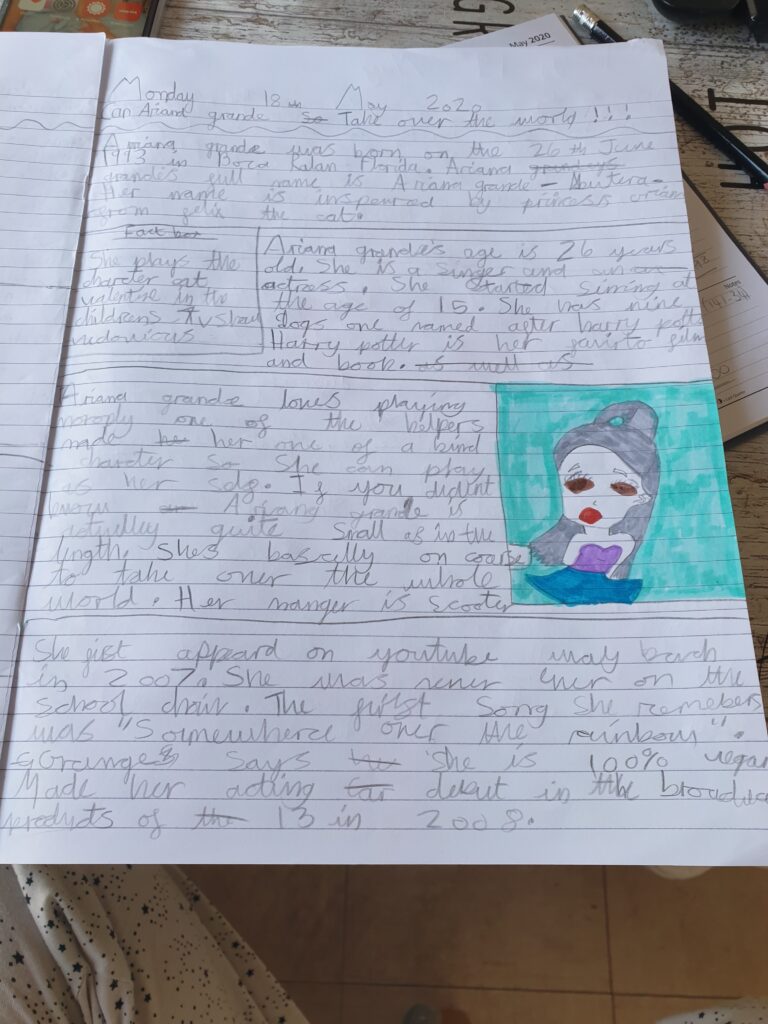 May 2020
Monday 18th May 2020
Can Ariand grande So Take over the world !!!
Ariana grande was born on the 26th June
1993 in Boca Ratan Florida. Ariana
grande's full name is Ariana grande - Butera.
Her name is inspenred by princess oriana
from felix the cat.
Fact box
She plays the
charcter cat
valentine in the
childrens TV show
vudovious
Ariana grande's age is 26 years
old. She is a singer and an
actress. She Started Siming at
the age of 15. She has nine
Dogs one named after harry potter
Harry potter is her favrito film
and book. as well as
Ariana grande loves playing
monoply one of the helpers
made he her one of a kind
charcter So She can play
as her self. If you didint
know Ariana grande is
actually quite Small as in the
length, Shes basically on coarse
to take over the whole
world. Her manger is scooter
She fist appeard on youtube way back
in 2007. She was never ever on the
School chair. The first Song She remebers
was "Somewhere over the rainbow".
Grange Says She is 100% vegan
Made her acting far debut in the
products of the 13 in 2008.
Notes